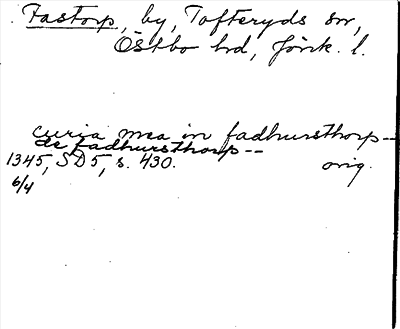 Fastorp, by, Tofteryds sn,
Östbo hd, Jönk. l.
curia mea in fadhursthorp--
de fadhursthorp--
1345, SD5, s. 430. orig.
6/4